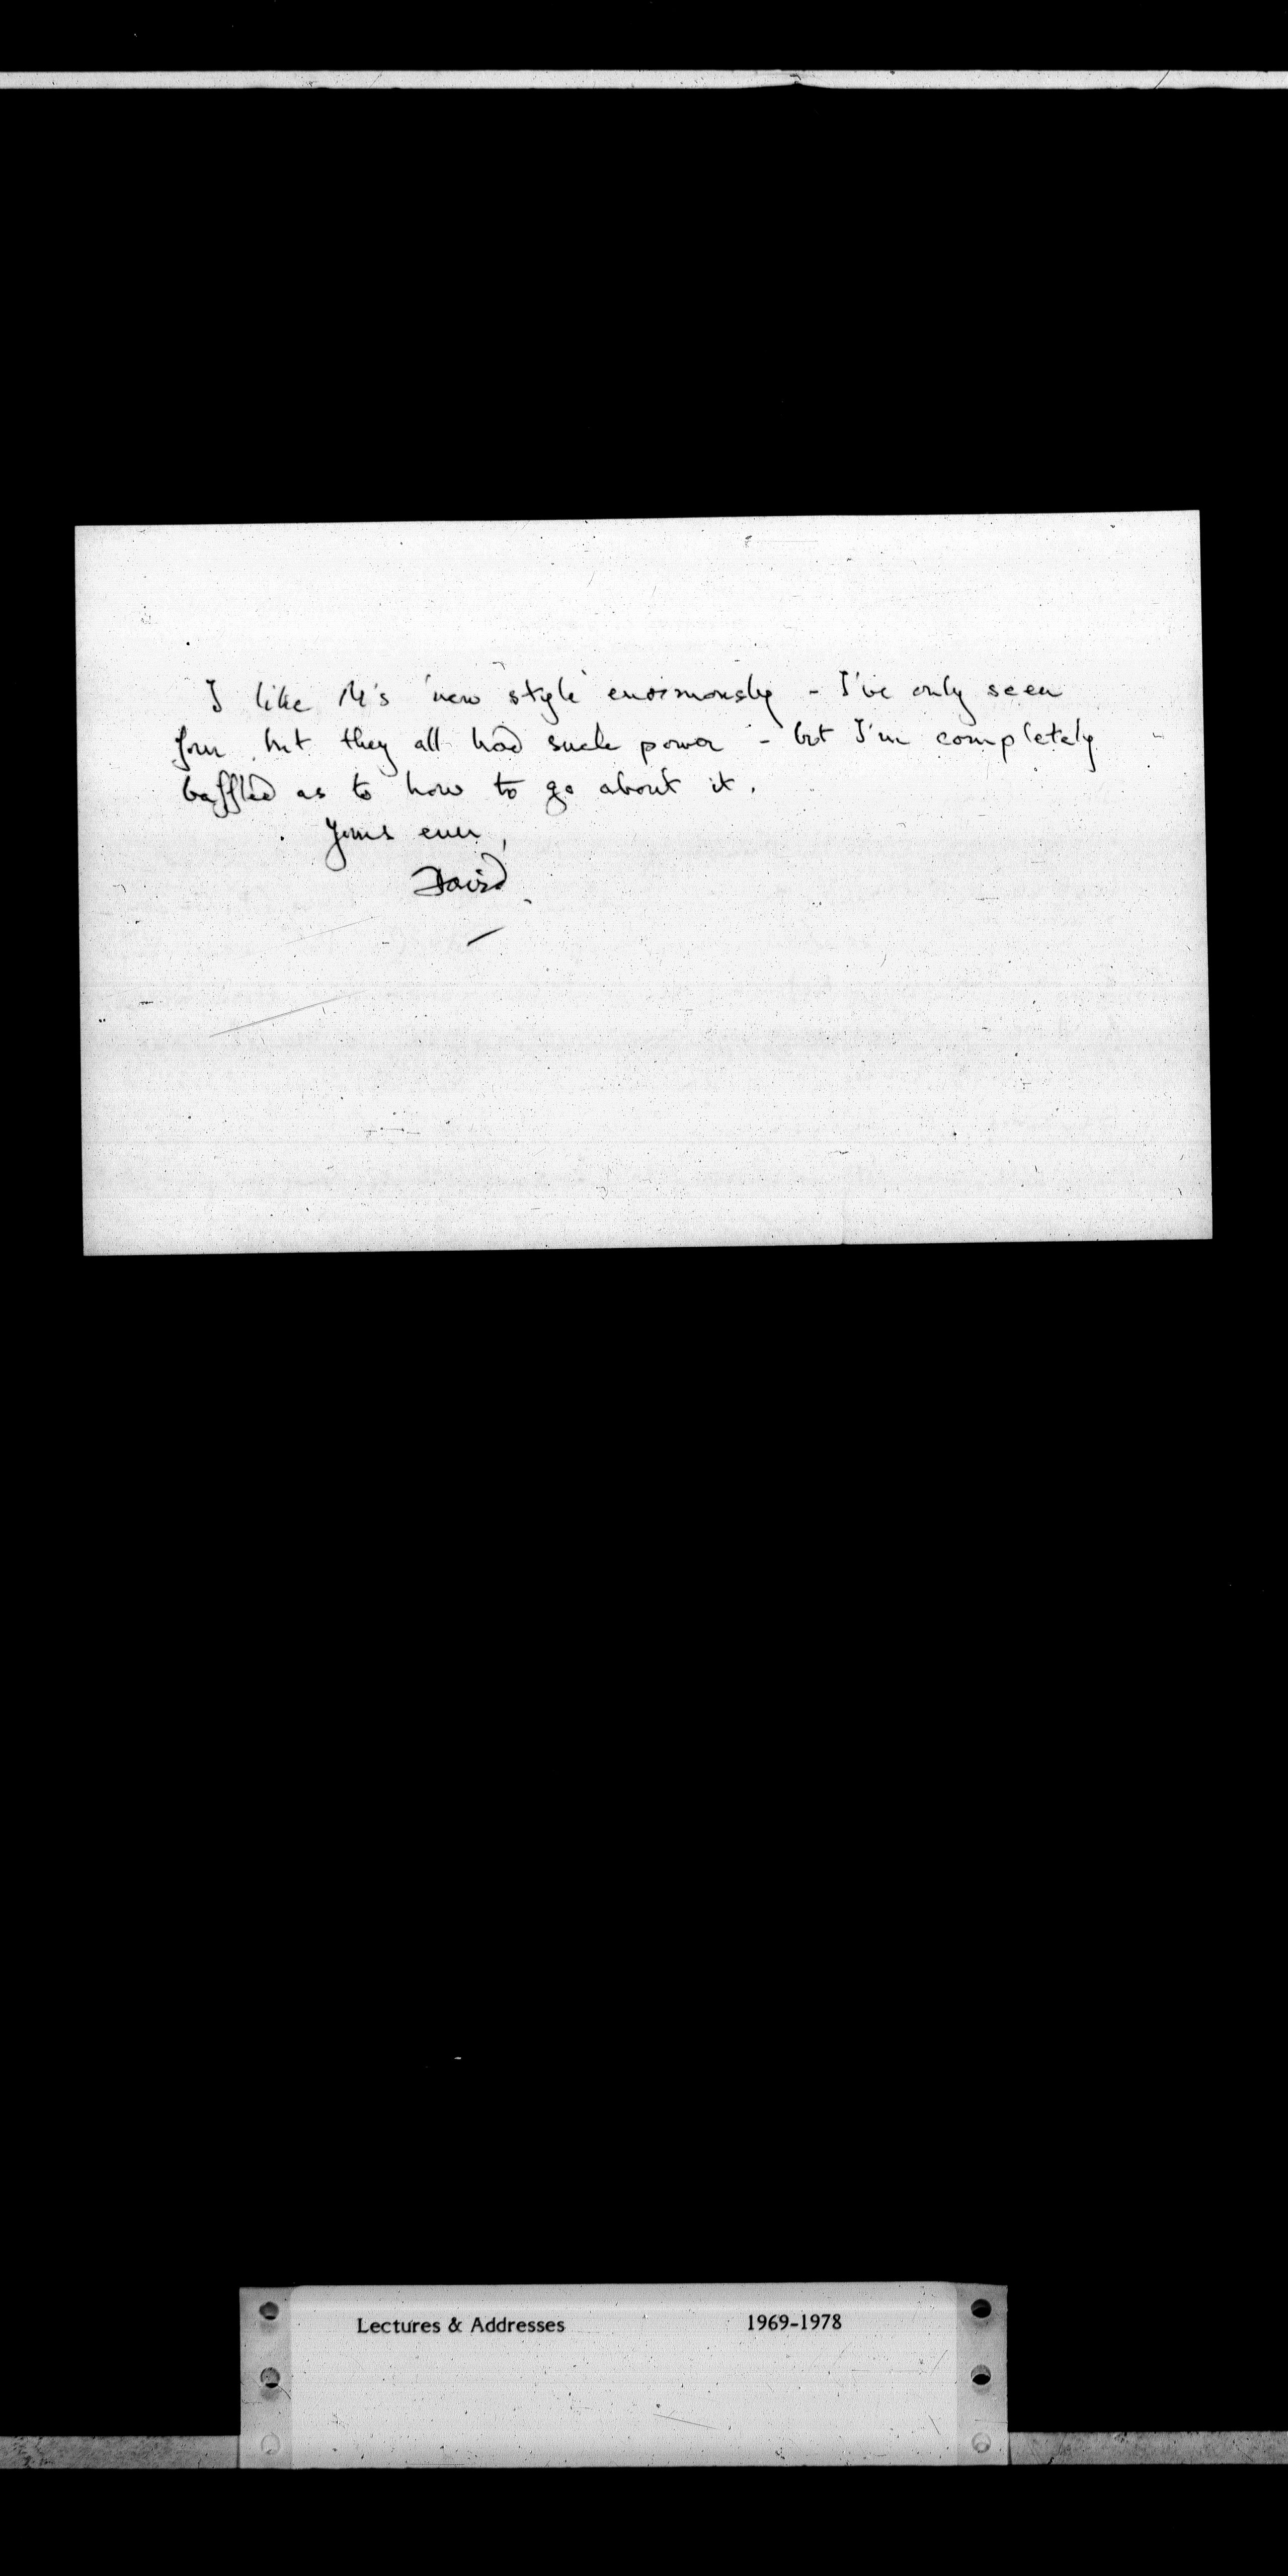 I like M's 'new style' enormously - I've only seen
four but they all had such power - but I'm completely
baffled as to how to go about it.
Yours ever,
David
Lectures & Addresses 1969-1978